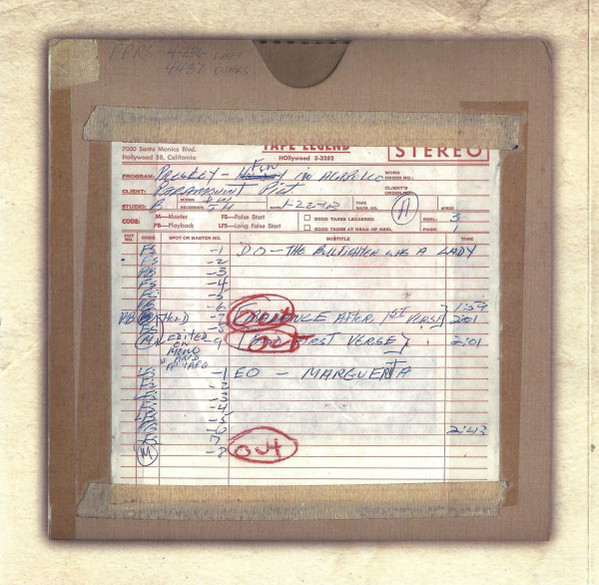 TAPE LEGEND
7000 Santa Monica Blvd.
Hollywood 38, California
Hollywood 3-3282
STEREO
PROGRAM: FUN IN ACAPULCO
WORK ORDER NO.:
CLIENT: PARAMOUNT PICT
CLIENT'S ORDER NO.:
STUDIO: B
DATE: 1-22-63
TAPE MACH. NO.
11
CODE: M—Master FS—False Start GOOD TAKES LEADERED REEL: 3
PB—Playback LFS—Long False Start GOOD TAKES AT HEAD OF REEL PAGE: 1
OUT NO. CODE SPOT OR MASTER NO. SUBTITLE TIME
FS -1 DO — THE BULLFIGHTER WAS A LADY
FS -2
PB -3
FS -4
FS -5
PB -6 1:59
PB -7 AFTER 1ST VERSE] 2:01
FS 8
M EDITED ON MONO AND "A" TAPE 9 VERSE} 2:01
LS -1 EO — MARGUERITA
-2
-3
-4
-5
-6 2:43
7
M -8 OUT